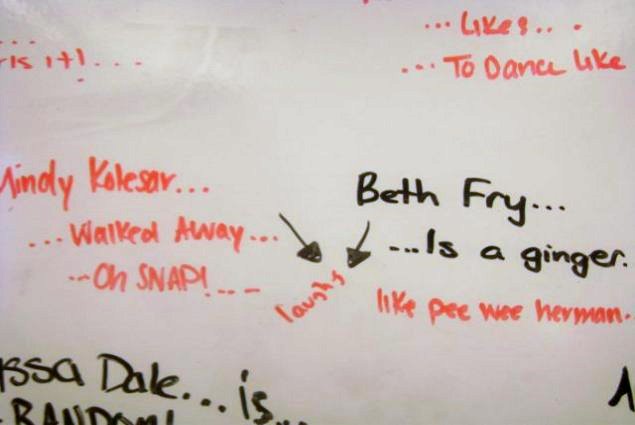 ... Likes...
... To Dance like
...
is it!...
Mindy Kolesar...
... Walked Away...
... Oh SNAP!...
Beth Fry...
...Is a ginger.
laughs
like pee wee herman.
ssa Dale... is...
RANDOM!